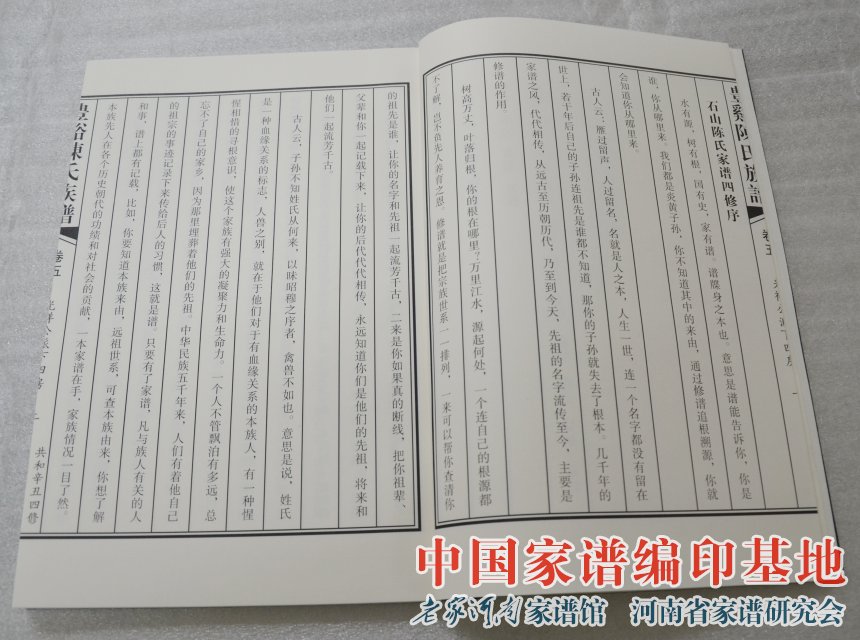 陳氏族譜
卷五
石山陈氏家谱四修序
水有源，树有根，国有史，家有谱。谱牒身之本也。意思是谱能告诉你，你是
谁，你从哪里来。我们都是炎黄子孙，你不知道其中的来由，通过修谱追根溯源，你就
会知道你从哪里来。
古人云：雁过留声，人过留名，名就是人之本，人生一世，连一个名字都没有留在
世上，若干年后自己的子孙连祖先是谁都不知道，那你的子孙就失去了根本。几千年的
家谱之风，代代相传，从远古至历朝历代，乃至到今天，先祖的名字流传至今，主要是
修谱的作用。
树高万丈，叶落归根，你的根在哪里？万里江水，源起何处，一个连自己的根源都
不了解，岂不负先人养育之恩，修谱就是把宗族世系一一排列，一来可以帮你查清你
的祖先是谁，让你的名字和先祖一起流芳千古，二来是你如果真的断线，把你祖辈、
父辈和你一起记载下来，让你的后代代代相传，永远知道你们是他们的先祖，将来和
他们一起流芳千古。
古人云，子孙不知姓氏从何来，以味昭穆之序者，禽兽不如也。意思是说，姓氏
是一种血缘关系的标志，人兽之别，就在于他们对于有血缘关系的本族人，有一种惺
惺相惜的寻根意识，使这个家族有强大的凝聚力和生命力，一个人不管飘泊有多远，总
忘不了自己的家乡，因为那里埋葬着他们的先祖。中华民族五千年来，人们有着他自己
的祖宗的事迹记录下来传给后人的习惯，这就是谱。只要有了家谱，凡与族人有关的人
和事，谱上都有记载，比如，你要知道本族来由，远祖世系，可查本族由来，你想了解
本族先人在各个历史朝代的功绩和对社会的贡献，一本家谱在手，家族情况一目了然。
陳氏族譜
卷五
共和辛丑四修
中国家谱编印基地
老家河南家谱馆 河南省家谱研究会